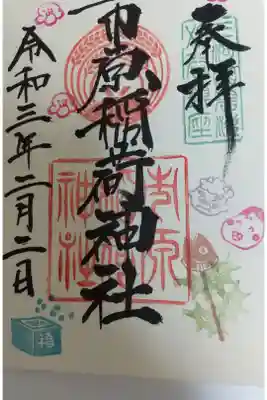 奉拝
市原稲荷神社
令和三年二月二日
市原
神社
福